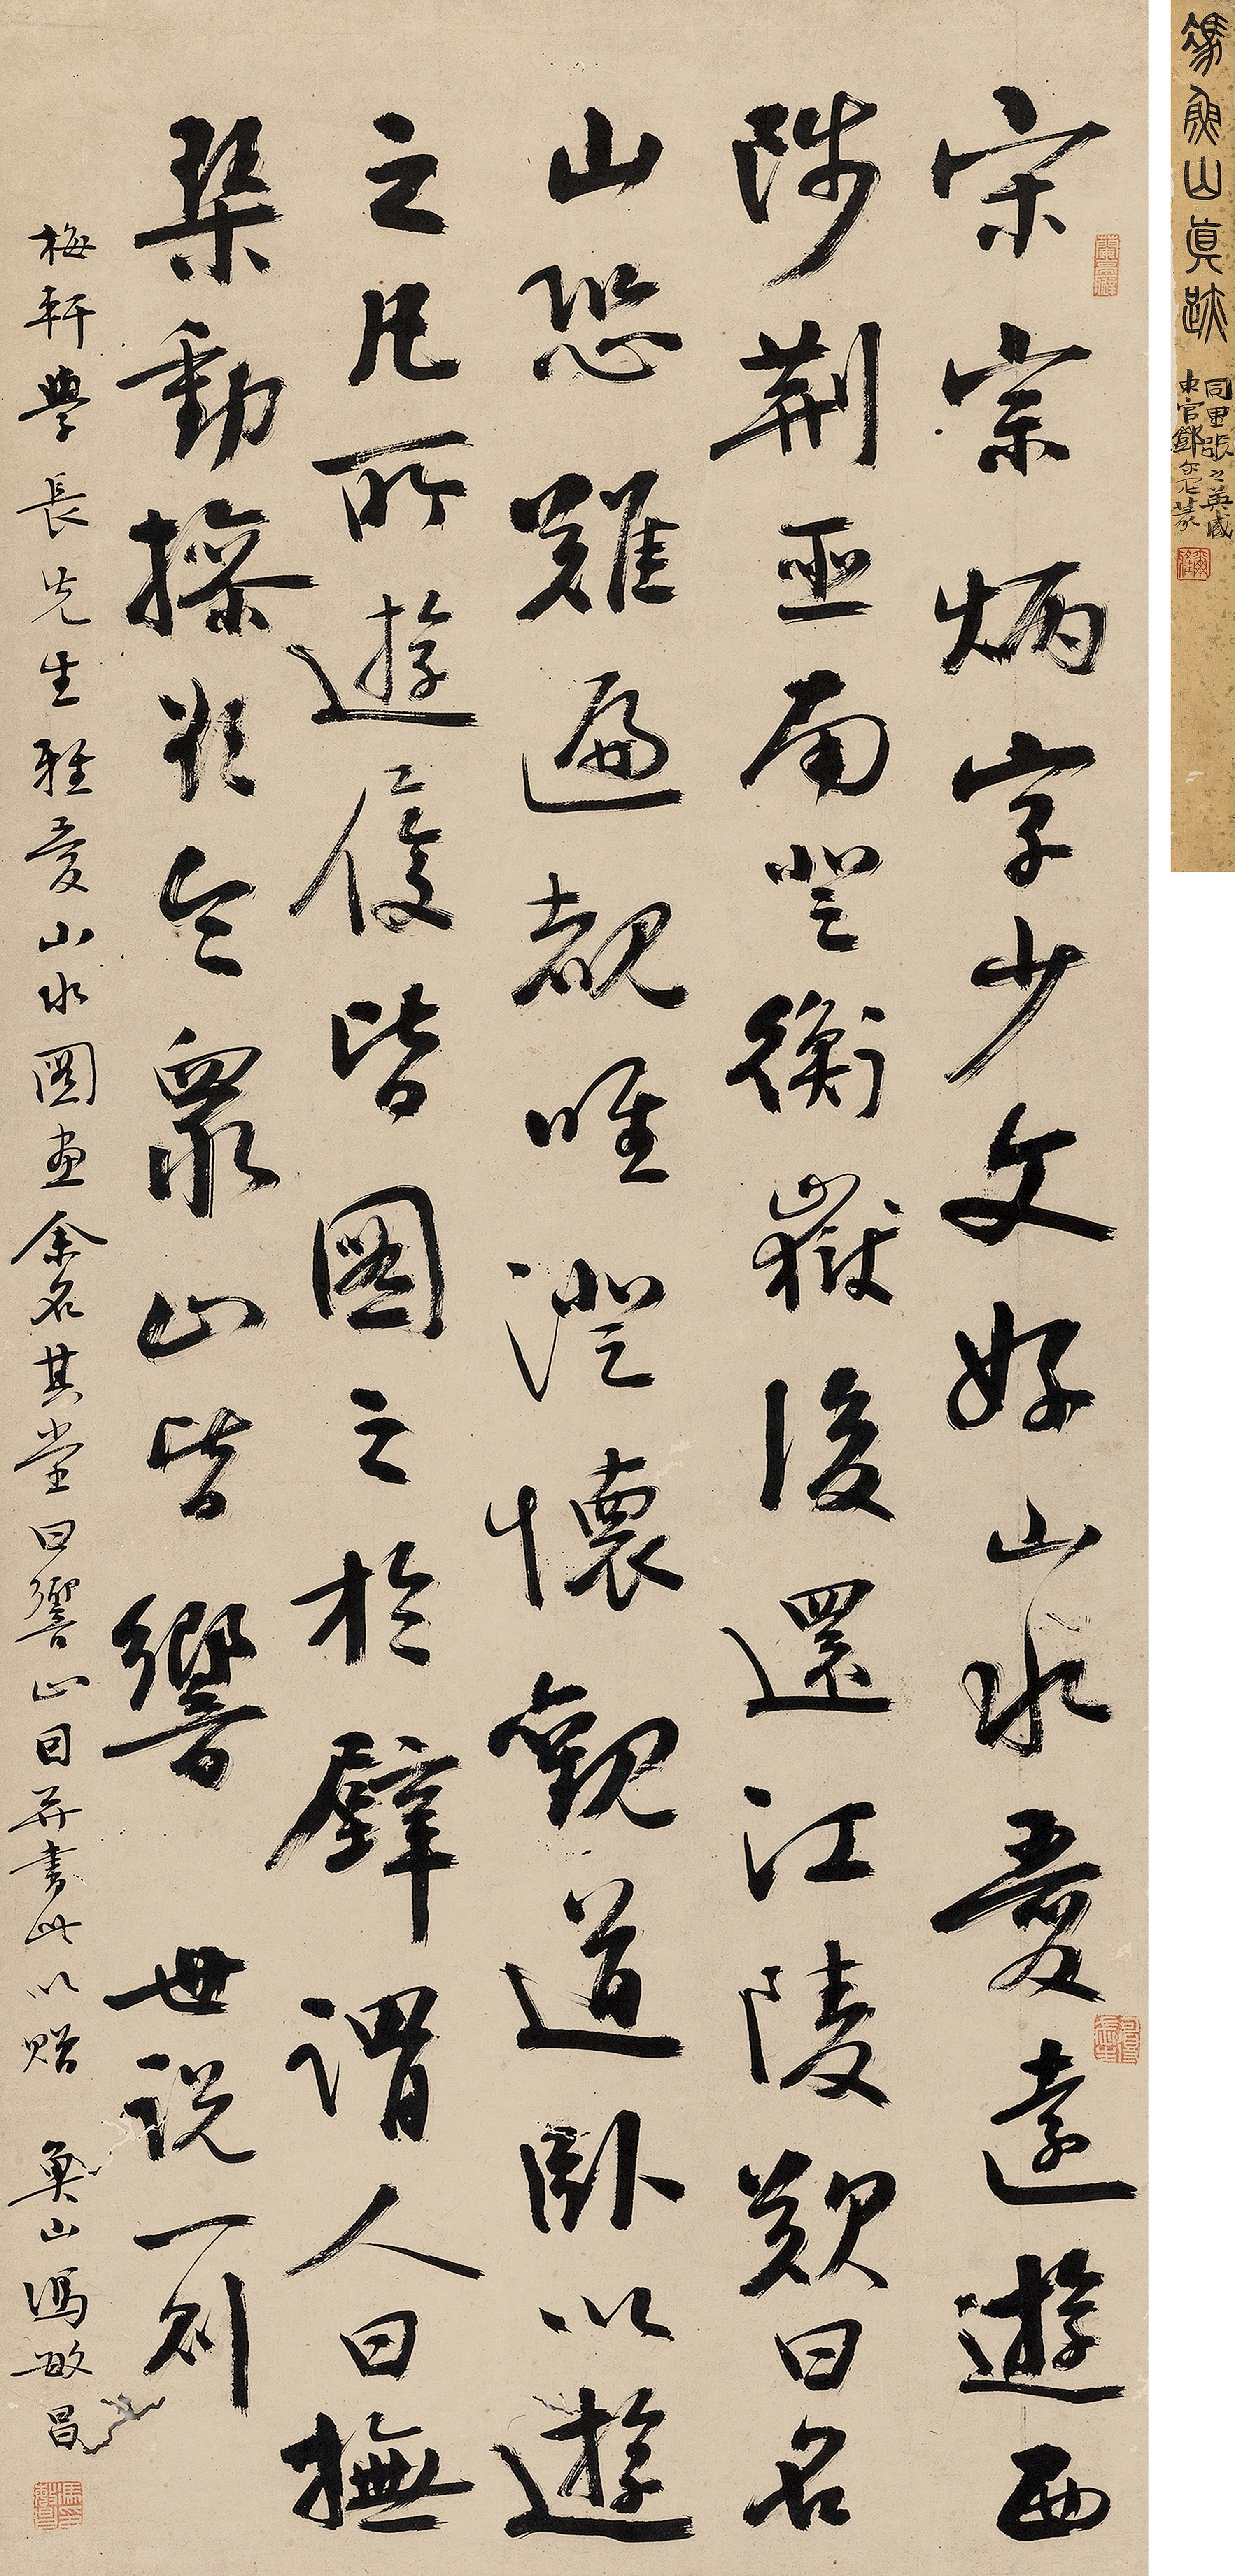 馮魚山真跡
同里張之英藏
東官鄧尔疋篆
宋宗炳字少文好山水愛遠遊西
陟荆巫南登衡嶽後還江陵歎曰名
山恐難遍覩唯澄懷觀道臥以遊
之凡所遊履皆圖之於壁謂人曰撫
琹動操欲令衆山皆響 世説一則
梅軒學長先生雅愛山水圖畫余名其堂曰響山因并書此以贈 魚山馮敏昌